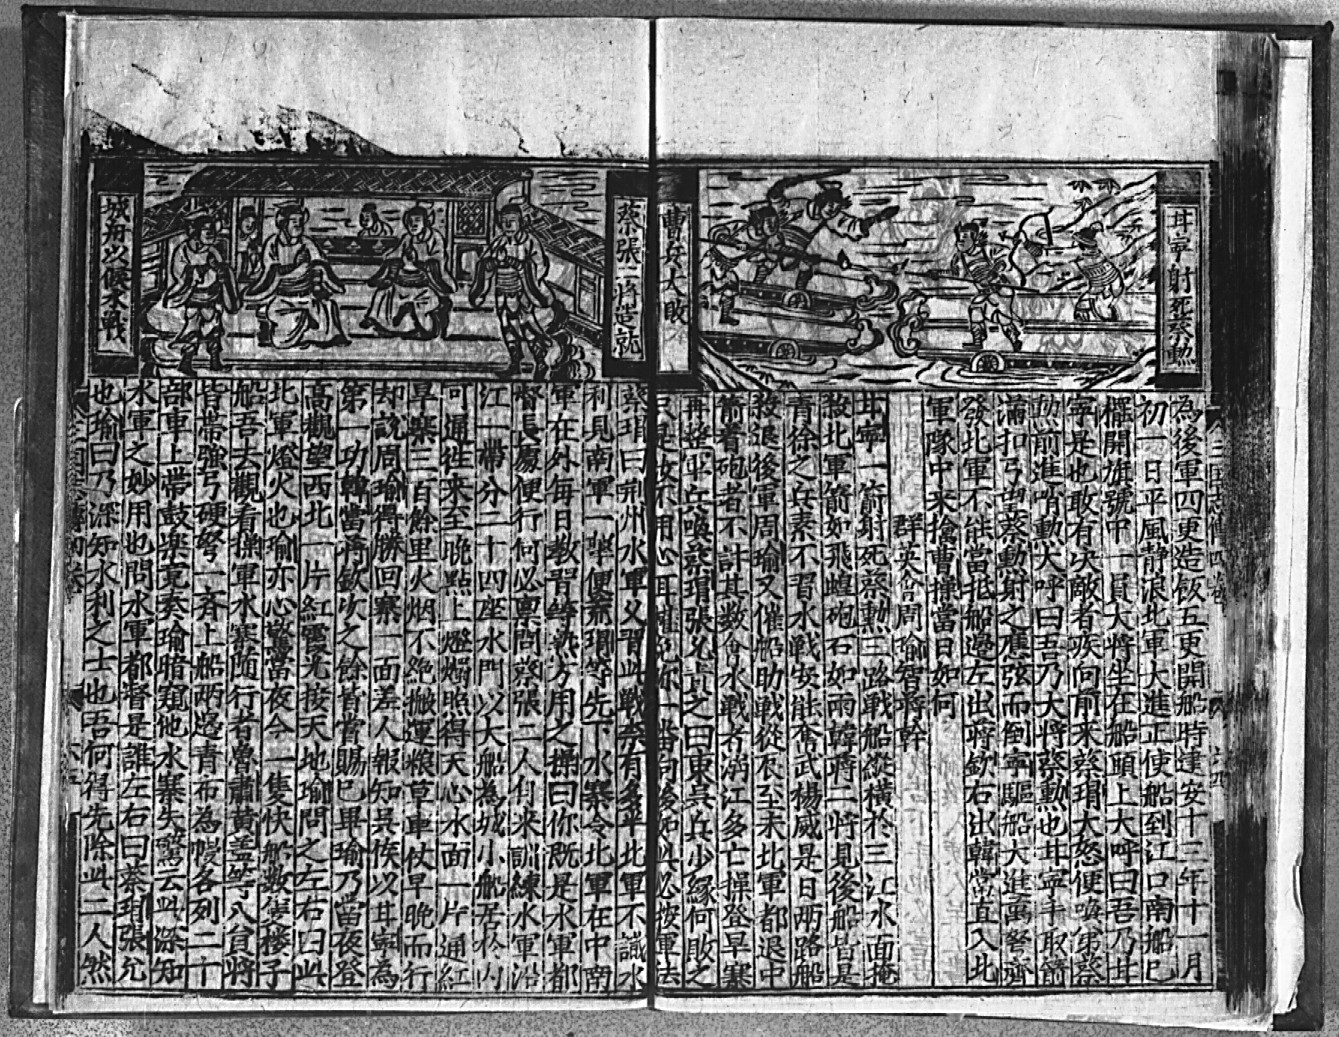 甘寧射死蔡勳
曹兵大敗
為後軍四更造飯五更開船時建安十三年十一月
初一日平風静浪北軍大進正使船到江口南船已
擺開旗號中一員大將坐在船頭上大呼曰吾乃甘
寧是也敢有決敵者疾向前来蔡瑁大怒便喚弟蔡
勳前進哨勳大呼曰吾乃大將蔡勳也甘寧手取箭
滿扣弓望蔡勳射之應弦而倒寧驅船大進萬弩齊
發北軍不能當抵船邊左出蔣欽右出韓當直入北
軍隊中来擒曹操當日如何
群英會周瑜智蔣幹
甘寧一箭射死蔡勳三路戰船縱橫於三江水面掩
殺北軍箭如飛蝗砲石如雨韓蔣二將見後船皆是
青徐之兵素不習水戰安能奮武楊威是日兩路船
殺退後軍周瑜又催船助戰從辰至未北軍都退中
箭着砲者不計其數會水戰者淌江多亡操登旱寨
再整軍兵喚蔡瑁張允責之曰東吳兵少緣何敗之
只是汝不用心耳
蔡張二將造就
城舟以候水戰
蔡瑁曰荊州水軍久習此戰奈有多半北軍不識水
利見南軍一擧便齋瑁等先下水寨令北軍在中南
軍在外每日教習綺熟方用之操曰你既是水軍都
督長膺便行何必禀問蔡張二人自来訓練水軍沿
江一帶分二十四座水門以大船為城小船居於内
可通徃来至晚點上燈燭照得天心水面一片通紅
旱寨三百餘里火烟不絶搬運粮草車仗早晚而行
却說周瑜得勝回寨一面差人報知吳侯以甘寧為
第一功韓當蔣欽次之餘皆賞賜已畢瑜乃當夜登
高觀望西北一片紅霞光接天地瑜問之左右曰此
北軍燈火也瑜亦心驚當夜令一隻快船数隻楼子
船吾去觀看操軍水寨随行者魯肅黃盖等八員將
皆帶強弓硬弩一齊上船兩邊青布為幔各列二十
部車上帶鼓樂竟奏瑜暗窺他水寨失驚云此深知
水軍之妙用也問水軍都督是誰左右曰蔡瑁張允
也瑜曰乃深知水利之士也吾何得先除此二人然